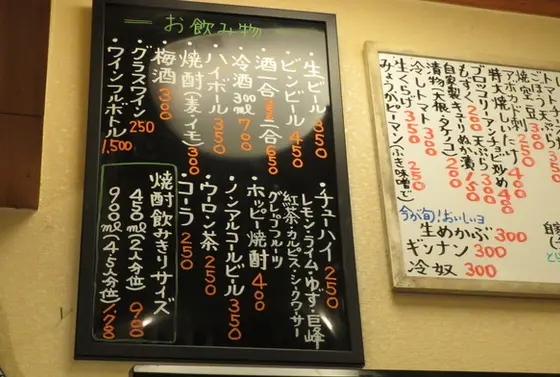 お飲み物
・生ビール 350
・ビンビール 450
・酒一合 350 二合 650
・冷酒 300ml 700
・ハイボール 350
・焼酎(麦・イモ) 300
・梅酒 300
・グラスワイン 250
・ワインフルボトル 1,500
・チューハイ 250
レモン・ライム・ゆず・巨峰
紅茶・カルピス・シークワーサー
グレープフルーツ
・ホッピー焼酎 400
・ノンアルコールビール 350
・ウーロン茶 250
・コーラ 200
焼酎飲みきりサイズ
450ml(2人分位)
900ml(4・5人分位)
アボカド刺
焼空豆
特大焼しいたけ
ブロッコリーアンチョビ炒め 400
もずく天ぷら 300
自家製キュウリぬか漬 150
漬物(大根・タケノコ) 200
冷しトマト 250
生くらげ 350
みょうがピーマン(ふき味噌で) 250
今が旬!おいしいヨ
生めかぶ 300
ギンナン 300
冷奴 300